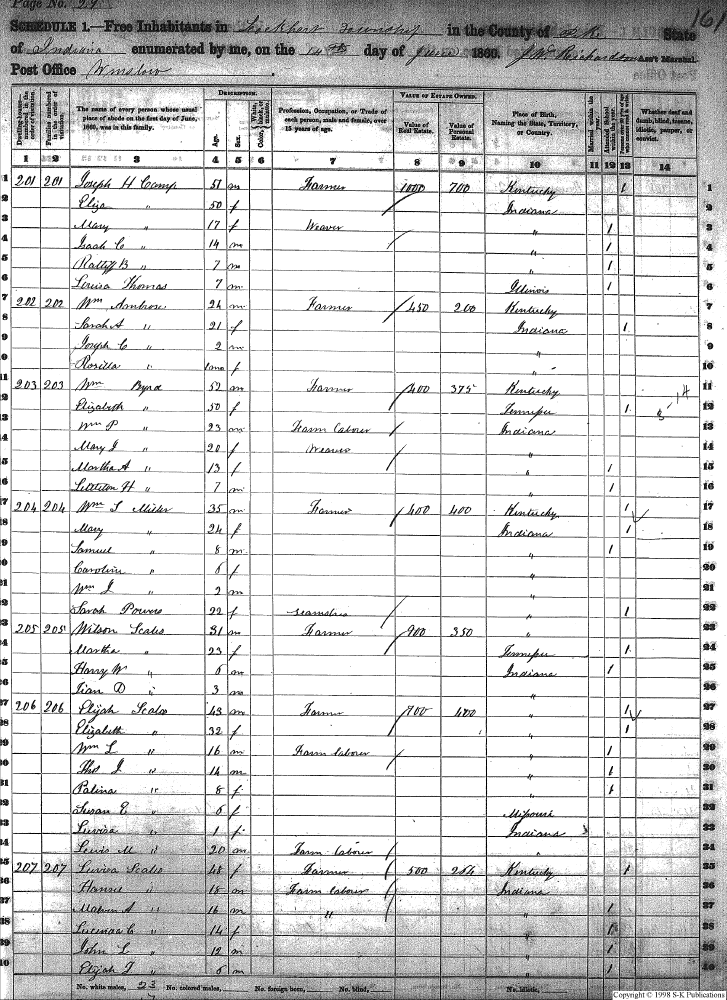 Page No. 29
161
SCHEDULE 1.—Free Inhabitants in Lockhart Township in the County of Pike State
of Indiana enumerated by me, on the 14th day of June 1860. J W Richardson Ass't Marshal.
Post Office Winslow
Dwelling-houses numbered in the order of visitation.
Families numbered in the order of visitation.
The name of every person whose usual place of abode on the first day of June, 1860, was in this family.
DESCRIPTION.
Age.
Sex.
Color, White, black, or mulatto.
Profession, Occupation, or Trade of each person, male and female, over 15 years of age.
VALUE OF ESTATE OWNED.
Value of Real Estate.
Value of Personal Estate.
Place of Birth, Naming the State, Territory, or Country.
Married within the year.
Attended School within the year.
Whether deaf and dumb, blind, insane, idiotic, pauper, or convict.
1 2 3 4 5 6 7 8 9 10 11 12 13 14
1 201 201 Joseph H Camp 51 m Farmer 1000 700 Kentucky 1 1
2 Eliza " 50 f Indiana 2
3 Mary " 17 f Weaver " 1 3
4 Isaah C " 14 m " 1 4
5 Ratliff B " 7 m " 1 5
6 Louisa Thomas 7 m Illinois 1 6
7 202 202 Wm Ambrose 24 m Farmer 450 200 Kentucky 7
8 Sarah A " 21 f Indiana 1 8
9 Joseph C " 2 m " 9
10 Rosilla " 1mo f " 10
11 203 203 Wm Byrd 52 m Farmer 400 375 Kentucky 11
12 Elizabeth " 50 f Tennessee 1 12
13 Wm P " 23 m Farm labour Indiana 13
14 Mary J " 20 f Weaver " 14
15 Martha A " 13 f " 1 15
16 Littleton H " 7 m " 1 16
17 204 204 Wm S Miller 35 m Farmer 400 400 Kentucky 1 17
18 Mary " 24 f Indiana 1 18
19 Samuel " 8 m " 1 19
20 Caroline " 6 f " 20
21 Wm J " 2 m " 21
22 Sarah Powers 22 f seamstres " 1 22
23 205 205 Wilson Scales 31 m Farmer 900 350 " 23
24 Martha " 23 f Tennessee 1 24
25 Harry W " 6 m Indiana 1 25
26 D " 3 m " 26
27 206 206 Elijah Scales 43 m Farmer 900 400 " 1 27
28 Elizabeth " 32 f " 1 28
29 Wm L " 16 m Farm labour " 1 29
30 Thos J " 14 m " 1 30
31 Palina " 8 f " 1 31
32 Susan E " 6 f Missouri 32
33 Luvisa " 1 f Indiana 33
34 Lewis M " 20 m Farm labour " 34
35 207 207 Luvisa Scales 48 f Farmer 500 264 Kentucky 1 35
36 18 m Farm labour Indiana 36
37 A " 16 m " " 37
38 C " 14 f " 1 38
39 John L " 12 m " 1 39
40 Elijah T " 6 m " 1 40
No. white males, 23 No. colored males, No. foreign born, No. blind, No. idiotic,
Copyright © 1998 S-K Publications